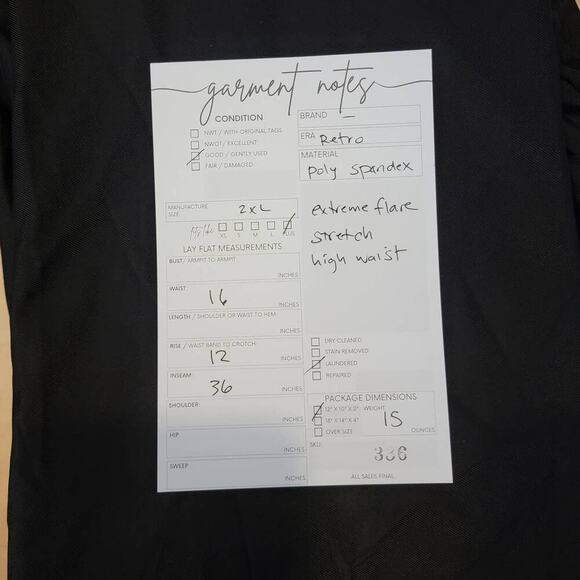 garment notes
CONDITION
NWT / WITH ORIGINAL TAGS
NWOT/ EXCELLENT
GOOD / GENTLY USED
FAIR / DAMAGED:
BRAND —
ERA Retro
MATERIAL
poly spandex
extreme flare
stretch
high waist
MANUFACTURE
SIZE 2XL
fits like
XS S M L PLUS
LAY FLAT MEASUREMENTS
BUST/ ARMPIT TO ARMPIT:
INCHES
WAIST:
16 INCHES
LENGTH / SHOULDER OR WAIST TO HEM:
INCHES
RISE / WAIST BAND TO CROTCH:
12 INCHES
INSEAM:
36 INCHES
SHOULDER:
INCHES
HIP
INCHES
SWEEP
INCHES
DRY CLEANED
STAIN REMOVED
LAUNDERED
REPAIRED
PACKAGE DIMENSIONS
12" X 10" X 2" WEIGHT
18" X 14" X 4" 15
OVER SIZE OUNCES
SKU: 336
ALL SALES FINAL